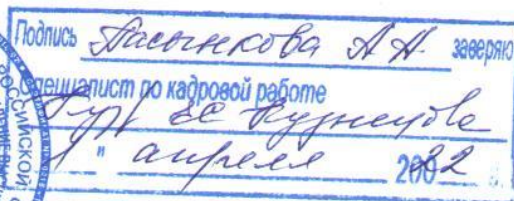 Подпись Пасынкова А.Н. заверяю
Специалист по кадровой работе
Е.С. Кузнецова
" апреля 2022
РОССИЙСКОЙ